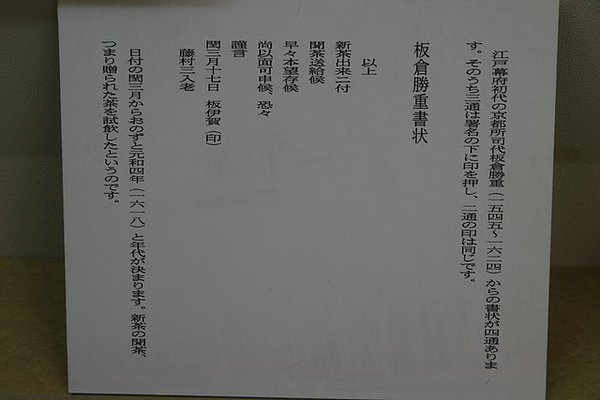 江戸幕府初代の京都所司代板倉勝重（一五四五～一六二四）からの書状が四通ありま
す。そのうち三通は署名の下に印を押し、二通の印は同じです。
板倉勝重書状
以上
新茶出来ニ付
聞茶送給候
早々本望存候
尚以面可申候、恐々
謹言
閏三月十七日　板伊賀（印）
藤村三入老
日付の閏三月からおのずと元和四年（一六一八）と年代が決まります。新茶の聞茶、
つまり贈られた茶を試飲したというのです。